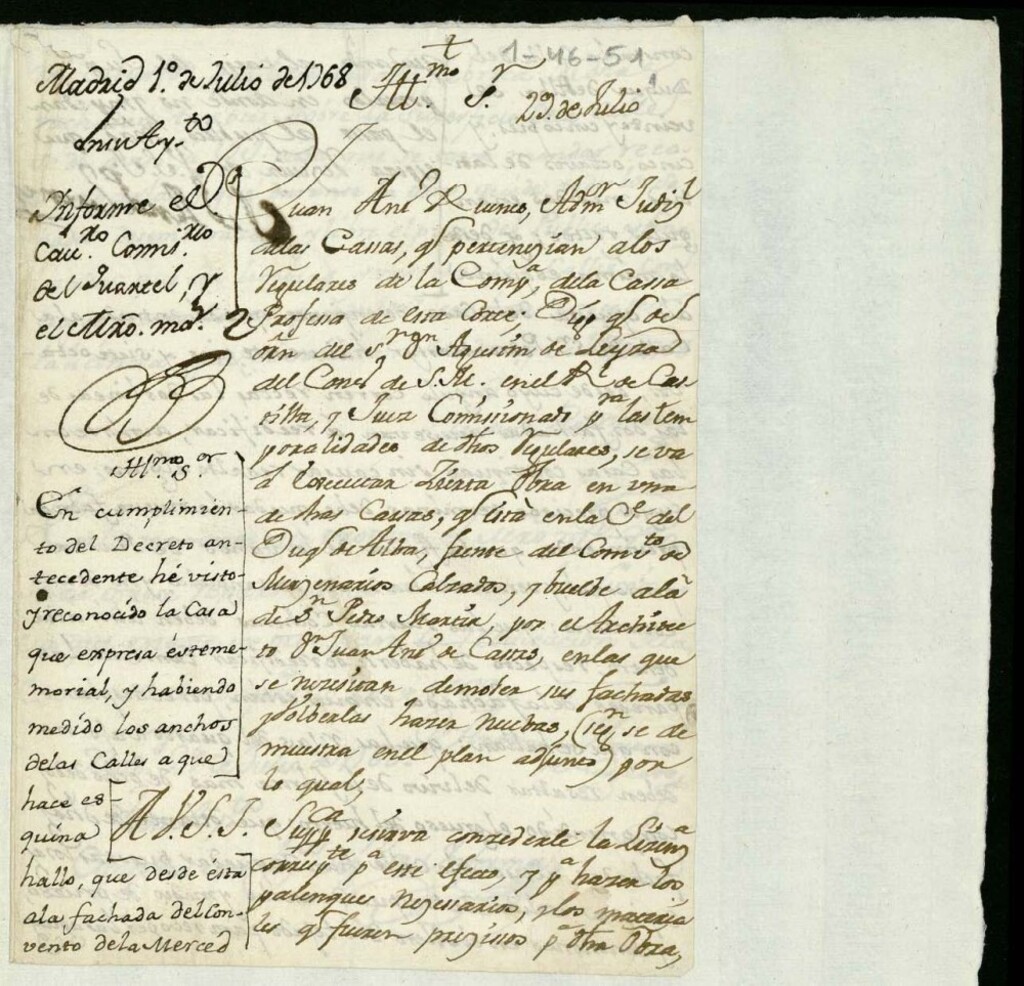 1-46-51
Madrid 1º. de Julio de 1768
en su Ay.to
Informe el
Cau.ro Comis.rio
del Quartel, y
el Mro. mor.
Ill.mo S.r
29. de Julio
Juan Antº
Adm.r Judiz.l
delas Cassas, q.e pertenezian alos
Regulares de la Comp.a, dela Cassa
Profesa de esta Corte; Dize q.e de
orn del s.r Dn Agustin de Leyza
del Cons.º de S.M. en el R.l de Cas
tilla, y Juez Comissionado p.ra las tem
poralidades de dhos Regulares, se va
â Executar Zierta Obra en vna
de dhas Cassas, q.e está en la C.e del
Duq.e de Alba, frente del Comb.to de
Merzenarios Calzados, y buelbe alâ
de S.n Pedro Martir, por el Architec
to Dn Juan Antº de Castro, en las que
se nezesitan demoler sus fachadas
y bolberlas hazer nuebas, (seg.n se de
muestra en el plan adjunto) por
lo qual,
A V.S.I. Supp.ca se sirva conzederle la Lizen.a
corresp.te p.a este efecto, y p.a hazer los
palenques nezessarios, y los materia
les q.e fueren prezissos p.a dha Obra,
Ill.mo S.or
En cumplimien-
to del Decreto an-
tecedente hé visto
y reconocido la Casa
que expresa éste me-
morial, y habiendo
medido los anchos
delas Calles a que
hace es
quina
hallo, que desde ésta
ala fachada del Con-
vento dela Merced